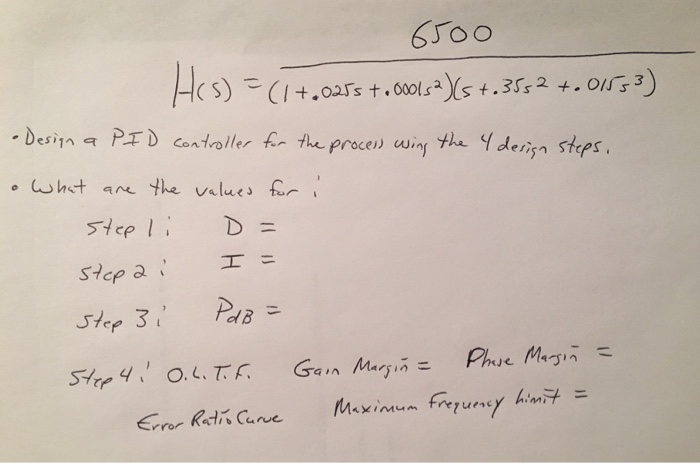 6500
H(s) = (1+.025s+.0001s²)(s+.35s²+.015s³)
• Design a PID controller for the process using the 4 design steps.
• What are the values for :
Step 1: D =
Step 2: I =
Step 3: PdB =
Step 4: O.L.T.F. Gain Margin = Phase Margin =
Error Ratio Curve Maximum Frequency Limit =